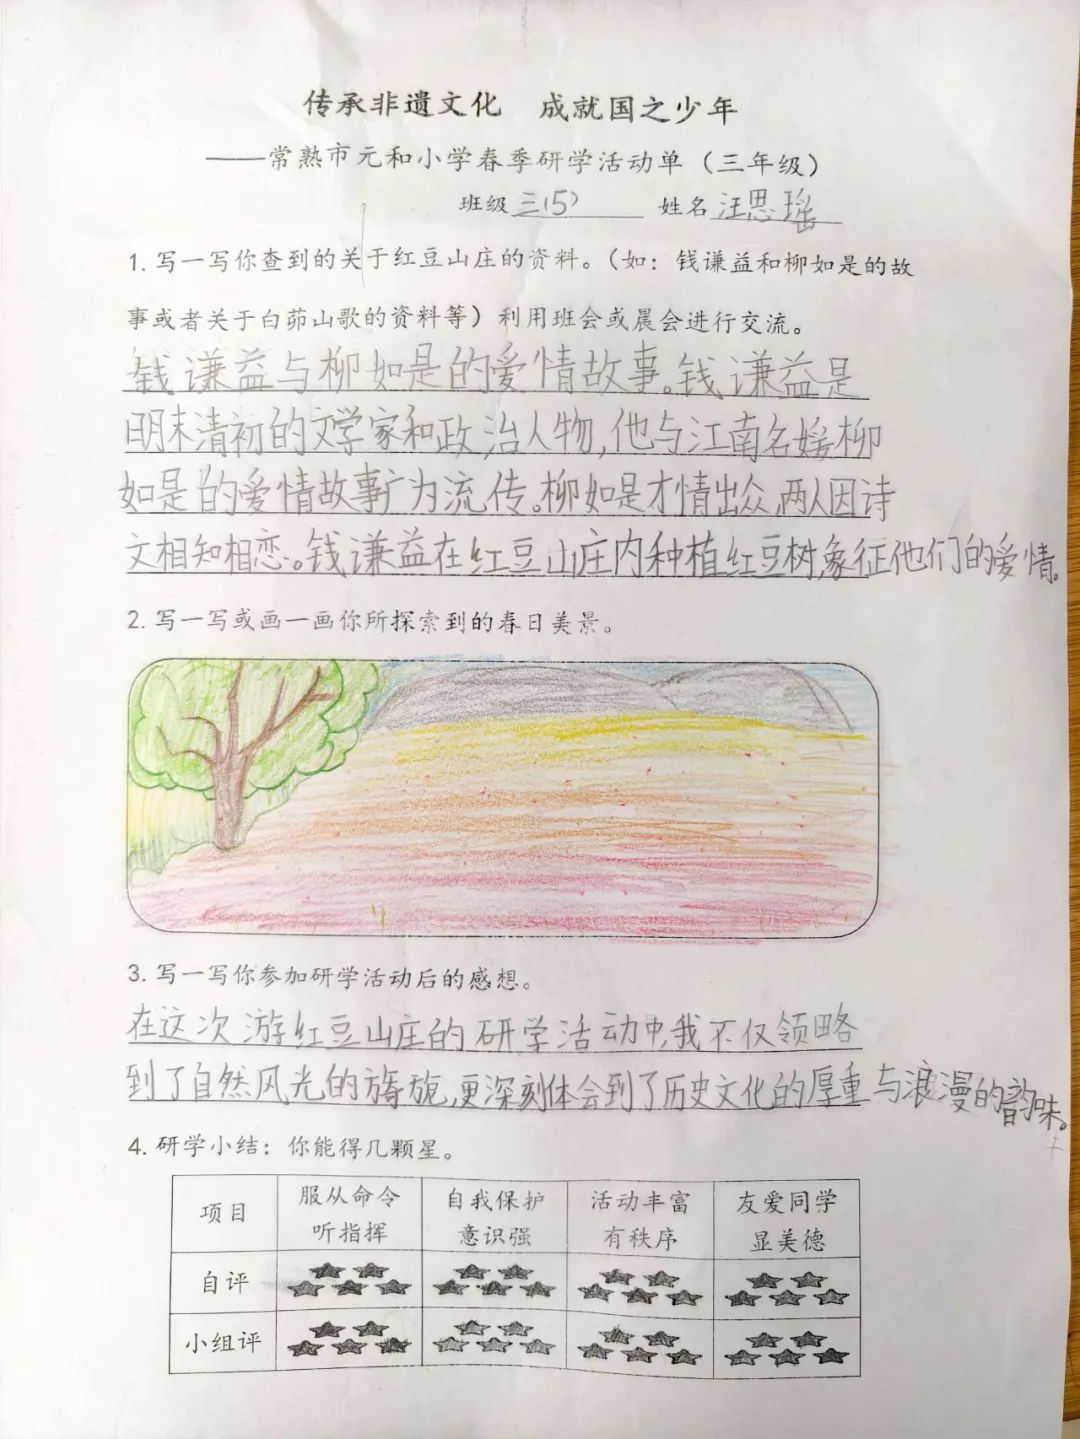 传承非遗文化 成就国之少年
——常熟市元和小学春季研学活动单（三年级）
班级 三(5) 姓名 汪思瑶
1. 写一写你查到的关于红豆山庄的资料。（如：钱谦益和柳如是的故
事或者关于白茆山歌的资料等）利用班会或晨会进行交流。
钱谦益与柳如是的爱情故事。钱谦益是
明末清初的文学家和政治人物,他与江南名媛柳
如是的爱情故事广为流传。柳如是才情出众,两人因诗
文相知相恋。钱谦益在红豆山庄内种植红豆树,象征他们的爱情。
2. 写一写或画一画你所探索到的春日美景。
3. 写一写你参加研学活动后的感想。
在这次游红豆山庄的研学活动中,我不仅领略
到了自然风光的旖旎,更深刻体会到了历史文化的厚重与浪漫的韵味。
4. 研学小结：你能得几颗星。
项目 服从命令 听指挥 自我保护 意识强 活动丰富 有秩序 友爱同学 显美德
自评
小组评